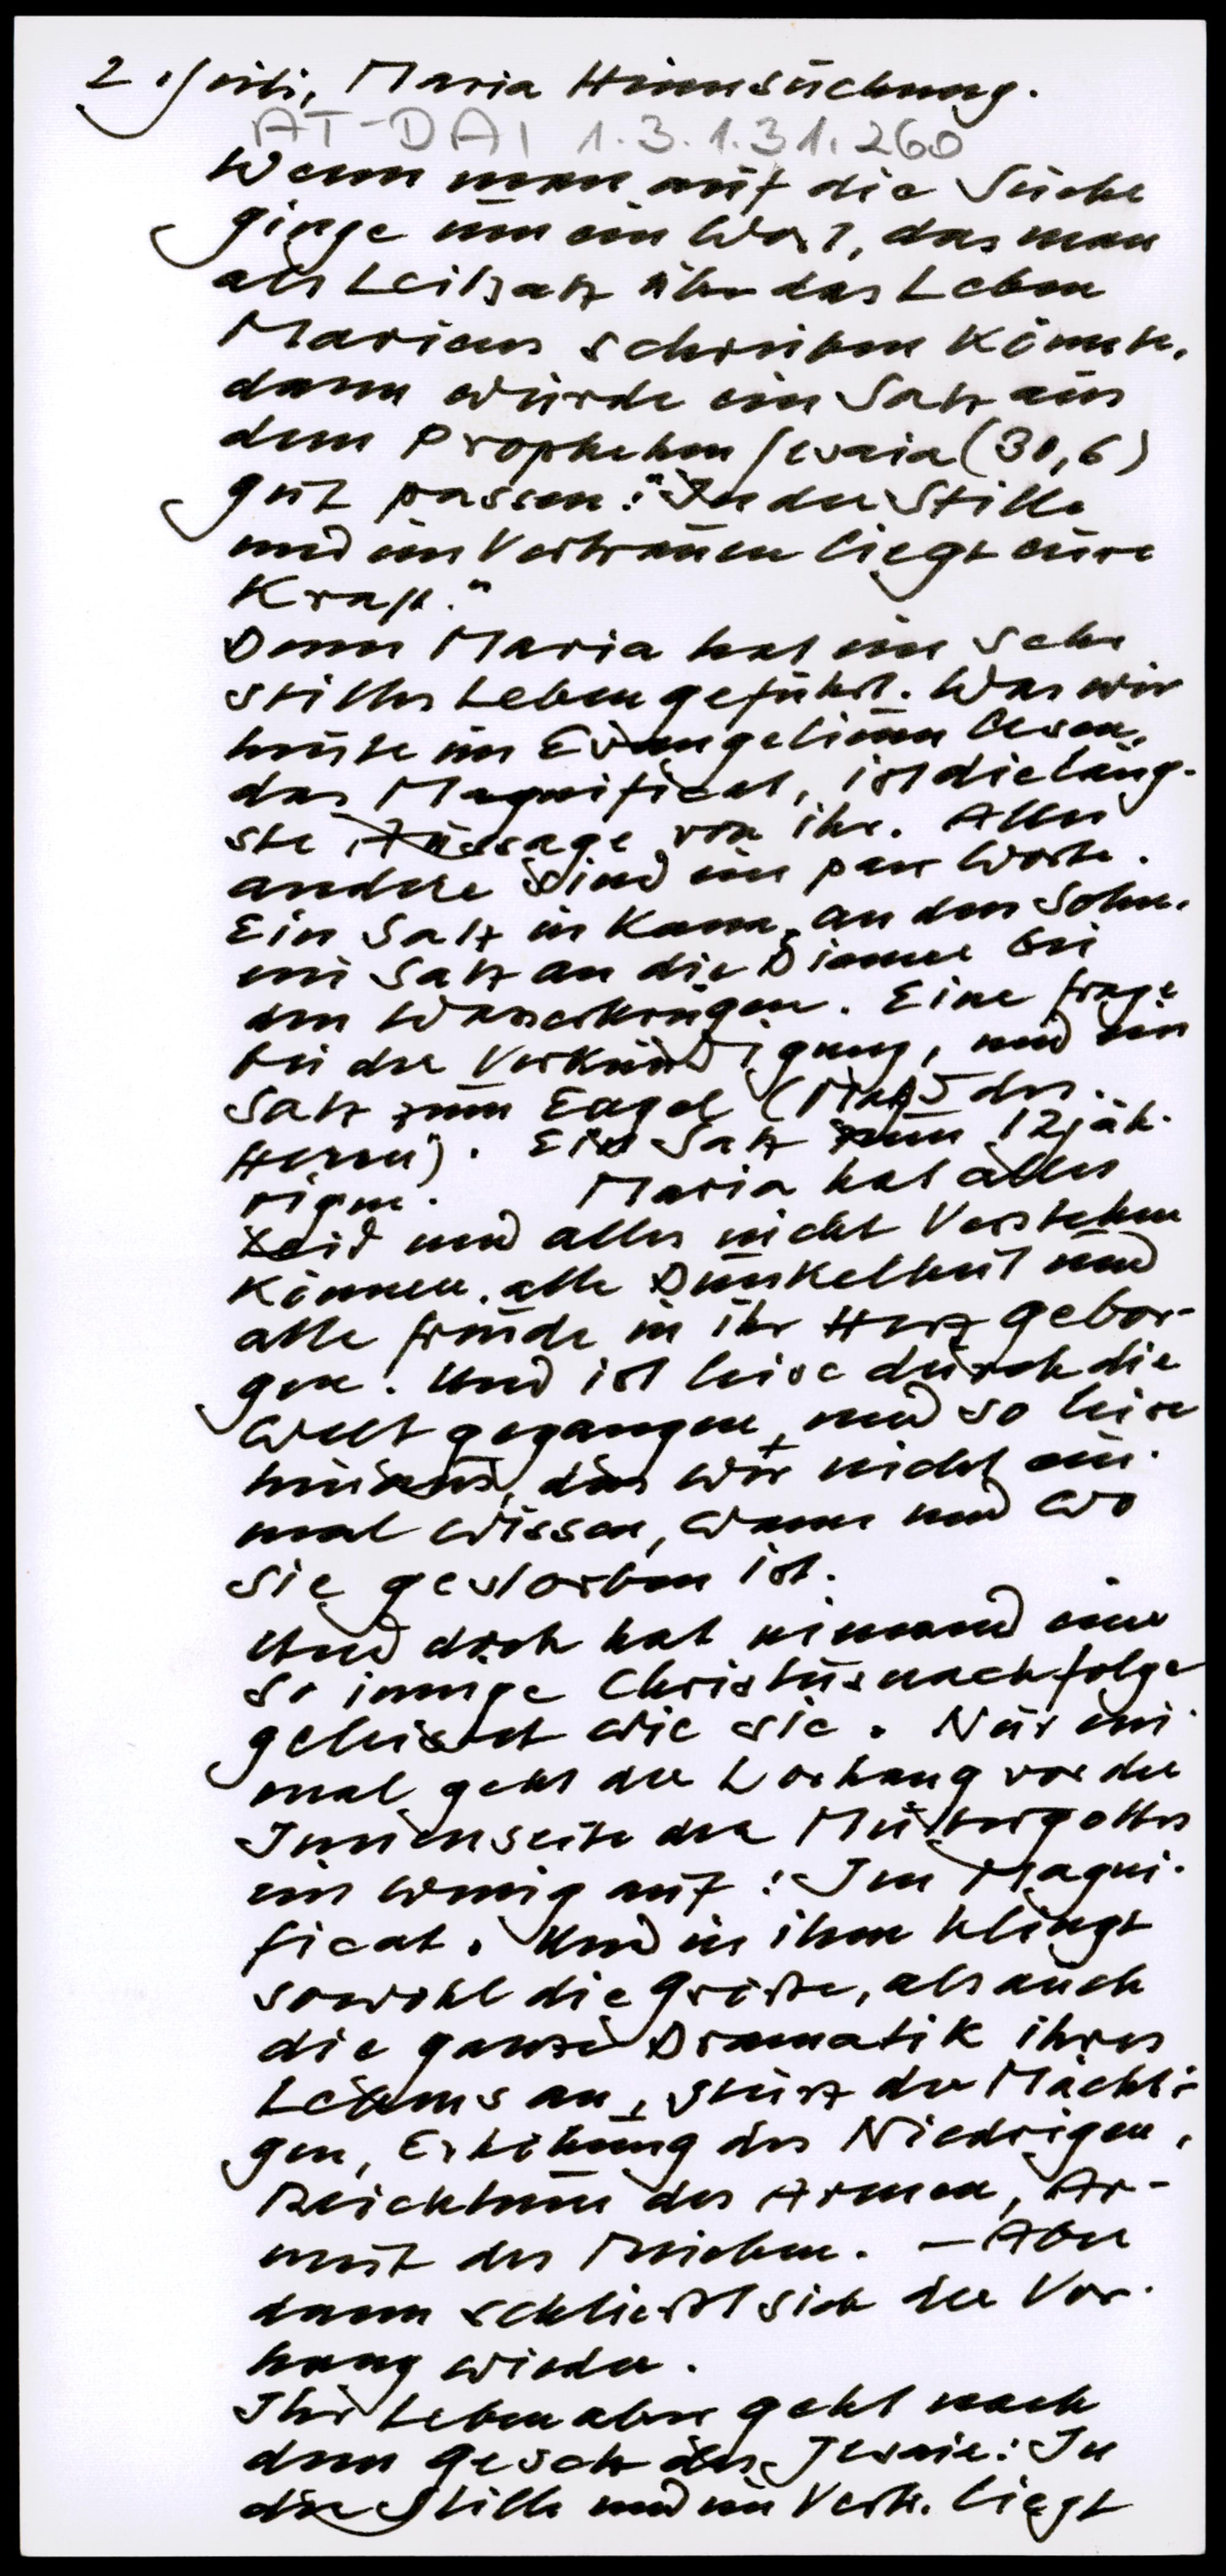 2. Juli, Maria Heimsuchung.
AT-DAI 1.3.1.31.260
Wenn man auf die Suche
ginge um ein Wort, das man
als Leitsatz über das Leben
Mariens schreiben könnte,
dann würde ein Satz aus
dem Propheten Jesaia (30,6)
gut passen: "In der Stille
und im Vertrauen liegt eure
Kraft."
Denn Maria hat ein sehr
stilles Leben geführt. Was wir
heute im Evangelium lesen,
das Magnificat, ist die läng-
ste Aussage von ihr. Alles
andere sind ein paar Worte.
Ein Satz in Kana an den Sohn,
ein Satz an die Diener bei
den Wasserkrügen. Eine Frage
bei der Verkündigung, und ein
Satz zum Engel (Magd des
Herrn"). Ein Satz zum 12jäh-
rigen. Maria hat alles
Leid und alles nicht Verstehen
können, alle Dunkelheit und
alle Freude in ihr Herz gebor-
gen. Und ist leise durch die
Welt gegangen, und so leise
hinaus, das wir nicht ein-
mal wissen, wann und wo
sie gestorben ist.
Und doch hat niemand eine
so innige Christusnachfolge
geleistet wie sie. Nur ein-
mal geht der Vorhang vor der
Innenseite der Muttergottes
ein wenig auf: Im Magni-
ficat. Und in ihm klingt
sowohl die Größe, als auch
die ganze Dramatik ihres
Lebens an, Sturz der Mächti-
gen, Erhöhung des Niedrigen,
Reichtum des Armen, Ar-
mut des Reichen. - Aber
dann schließt sich der Vor-
hang wieder.
Ihr Leben aber geht nach
dem Gesetz des Jesaie: In
der Stille und im Vertr. liegt